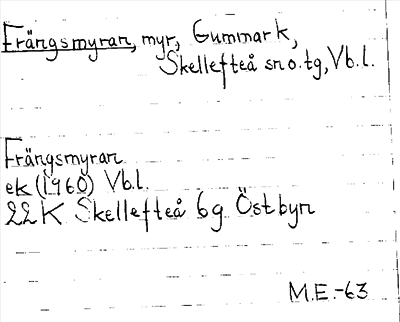 Frängsmyran, myr, Gummark,
Skellefteå sn o. tg, Vb.l.
Frängsmyran
ek (1960) Vb.l.
22K Skellefteå 6g Östbyn
M.E.-63